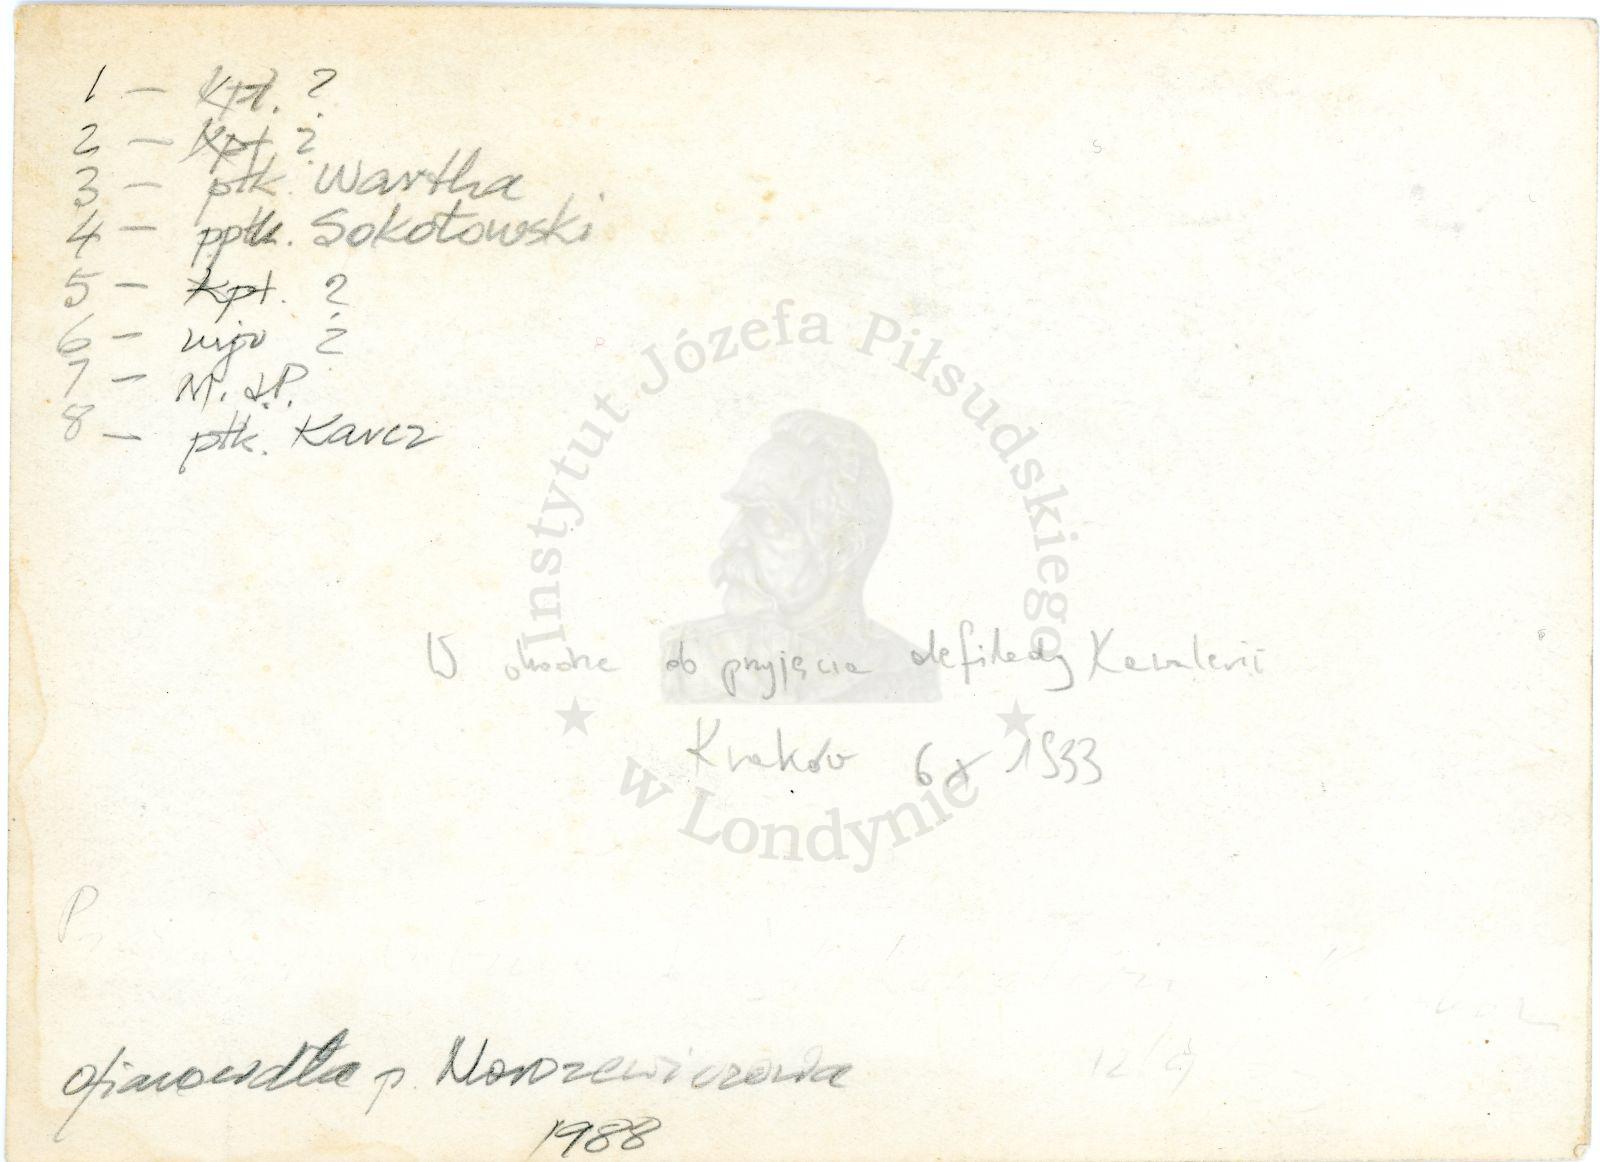 1 – kpt. ?
2 – kpt ?
3 – płk. Wartha
4 – ppłk. Sokołowski
5 – kpt. ?
6 – mjr ?
7 – M. J.P.
8 – płk. Karcz
Instytut Józefa Piłsudskiego
W drodze do przyjęcia defilady Kawalerii
Kraków 6 X 1933
w Londynie
P
ofiarowała p.
1988